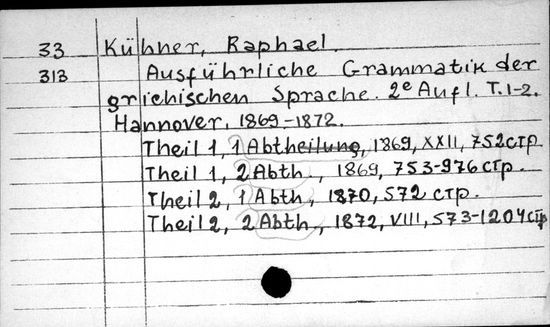 33 Kühner, Raphael.
313 Ausführliche Grammatik der
grichischen Sprache. 2e Aufl. T. 1-2.
Hannover, 1869-1872.
Theil 1, 1 Abtheilung, 1869, XXII, 752 стр.
Theil 1, 2 Abth., 1869, 753-976 стр.
Theil 2, 1 Abth., 1870, 572 стр.
Theil 2, 2 Abth., 1872, VIII, 573-1204 стр